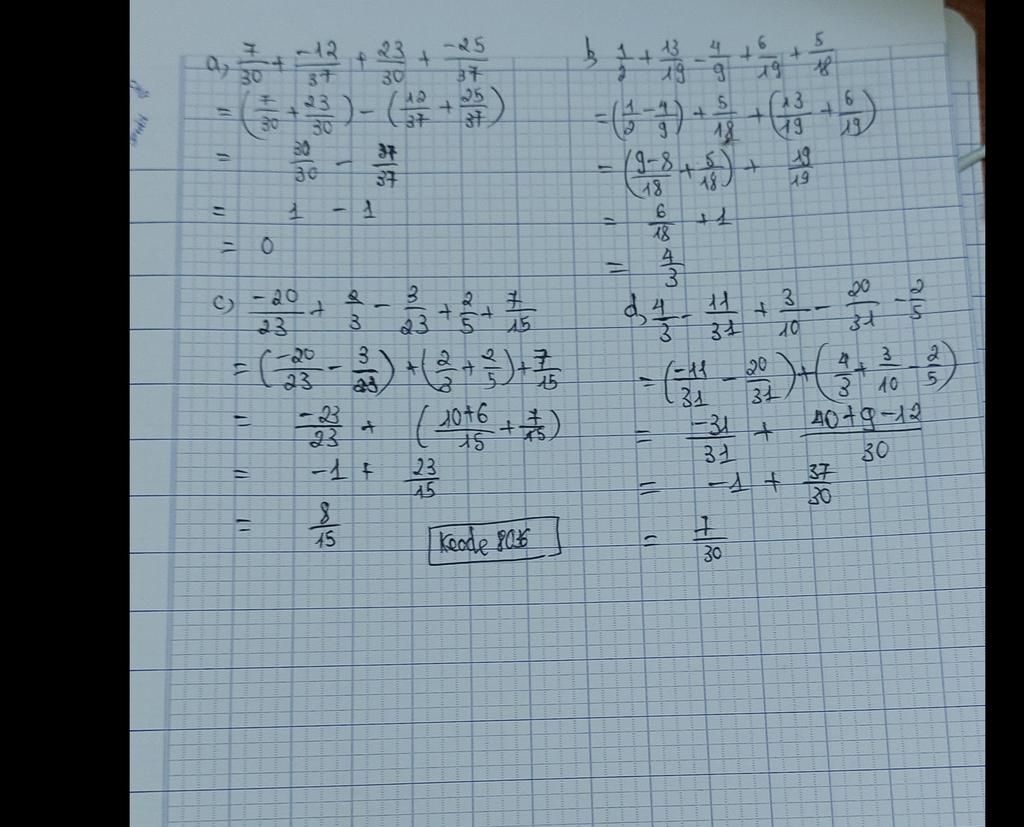 a, 7/30 + -12/37 + 23/30 + -25/37
= (7/30 + 23/30) - (12/37 + 25/37)
= 30/30 - 37/37
= 1 - 1
= 0
b, 1/2 + 13/19 - 4/9 + 6/19 + 5/18
= (1/2 - 4/9) + 5/18 + (13/19 + 6/19)
= (9-8/18 + 5/18) + 19/19
= 6/18 + 1
= 4/3
c) -20/23 + 2/3 - 3/23 + 2/5 + 7/15
= (-20/23 - 3/23) + (2/3 + 2/5) + 7/15
= -23/23 + (10+6/15 + 7/15)
= -1 + 23/15
= 8/15
d, 4/3 - 11/31 + 3/10 - 20/31 - 2/5
= (-11/31 - 20/31) + (4/3 + 3/10 - 2/5)
= -31/31 + 40+9-12/30
= -1 + 37/30
= 7/30